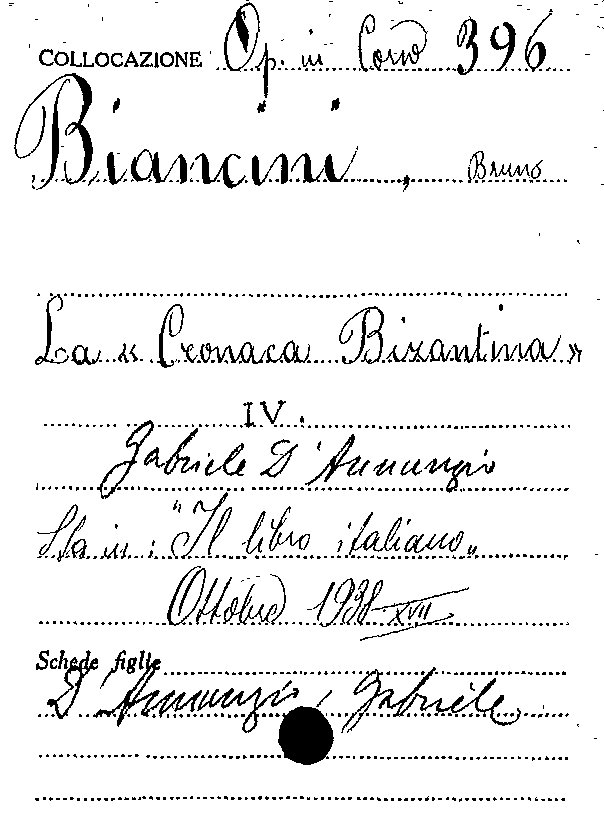 COLLOCAZIONE Op. in Corso 396
Biancini, Bruno
La « Cronaca Bizantina »
IV.
Gabriele D'Annunzio
Sta in: "Il libro italiano"
Ottobre 1938-XVII
Schede figlie
D'Annunzio, Gabriele